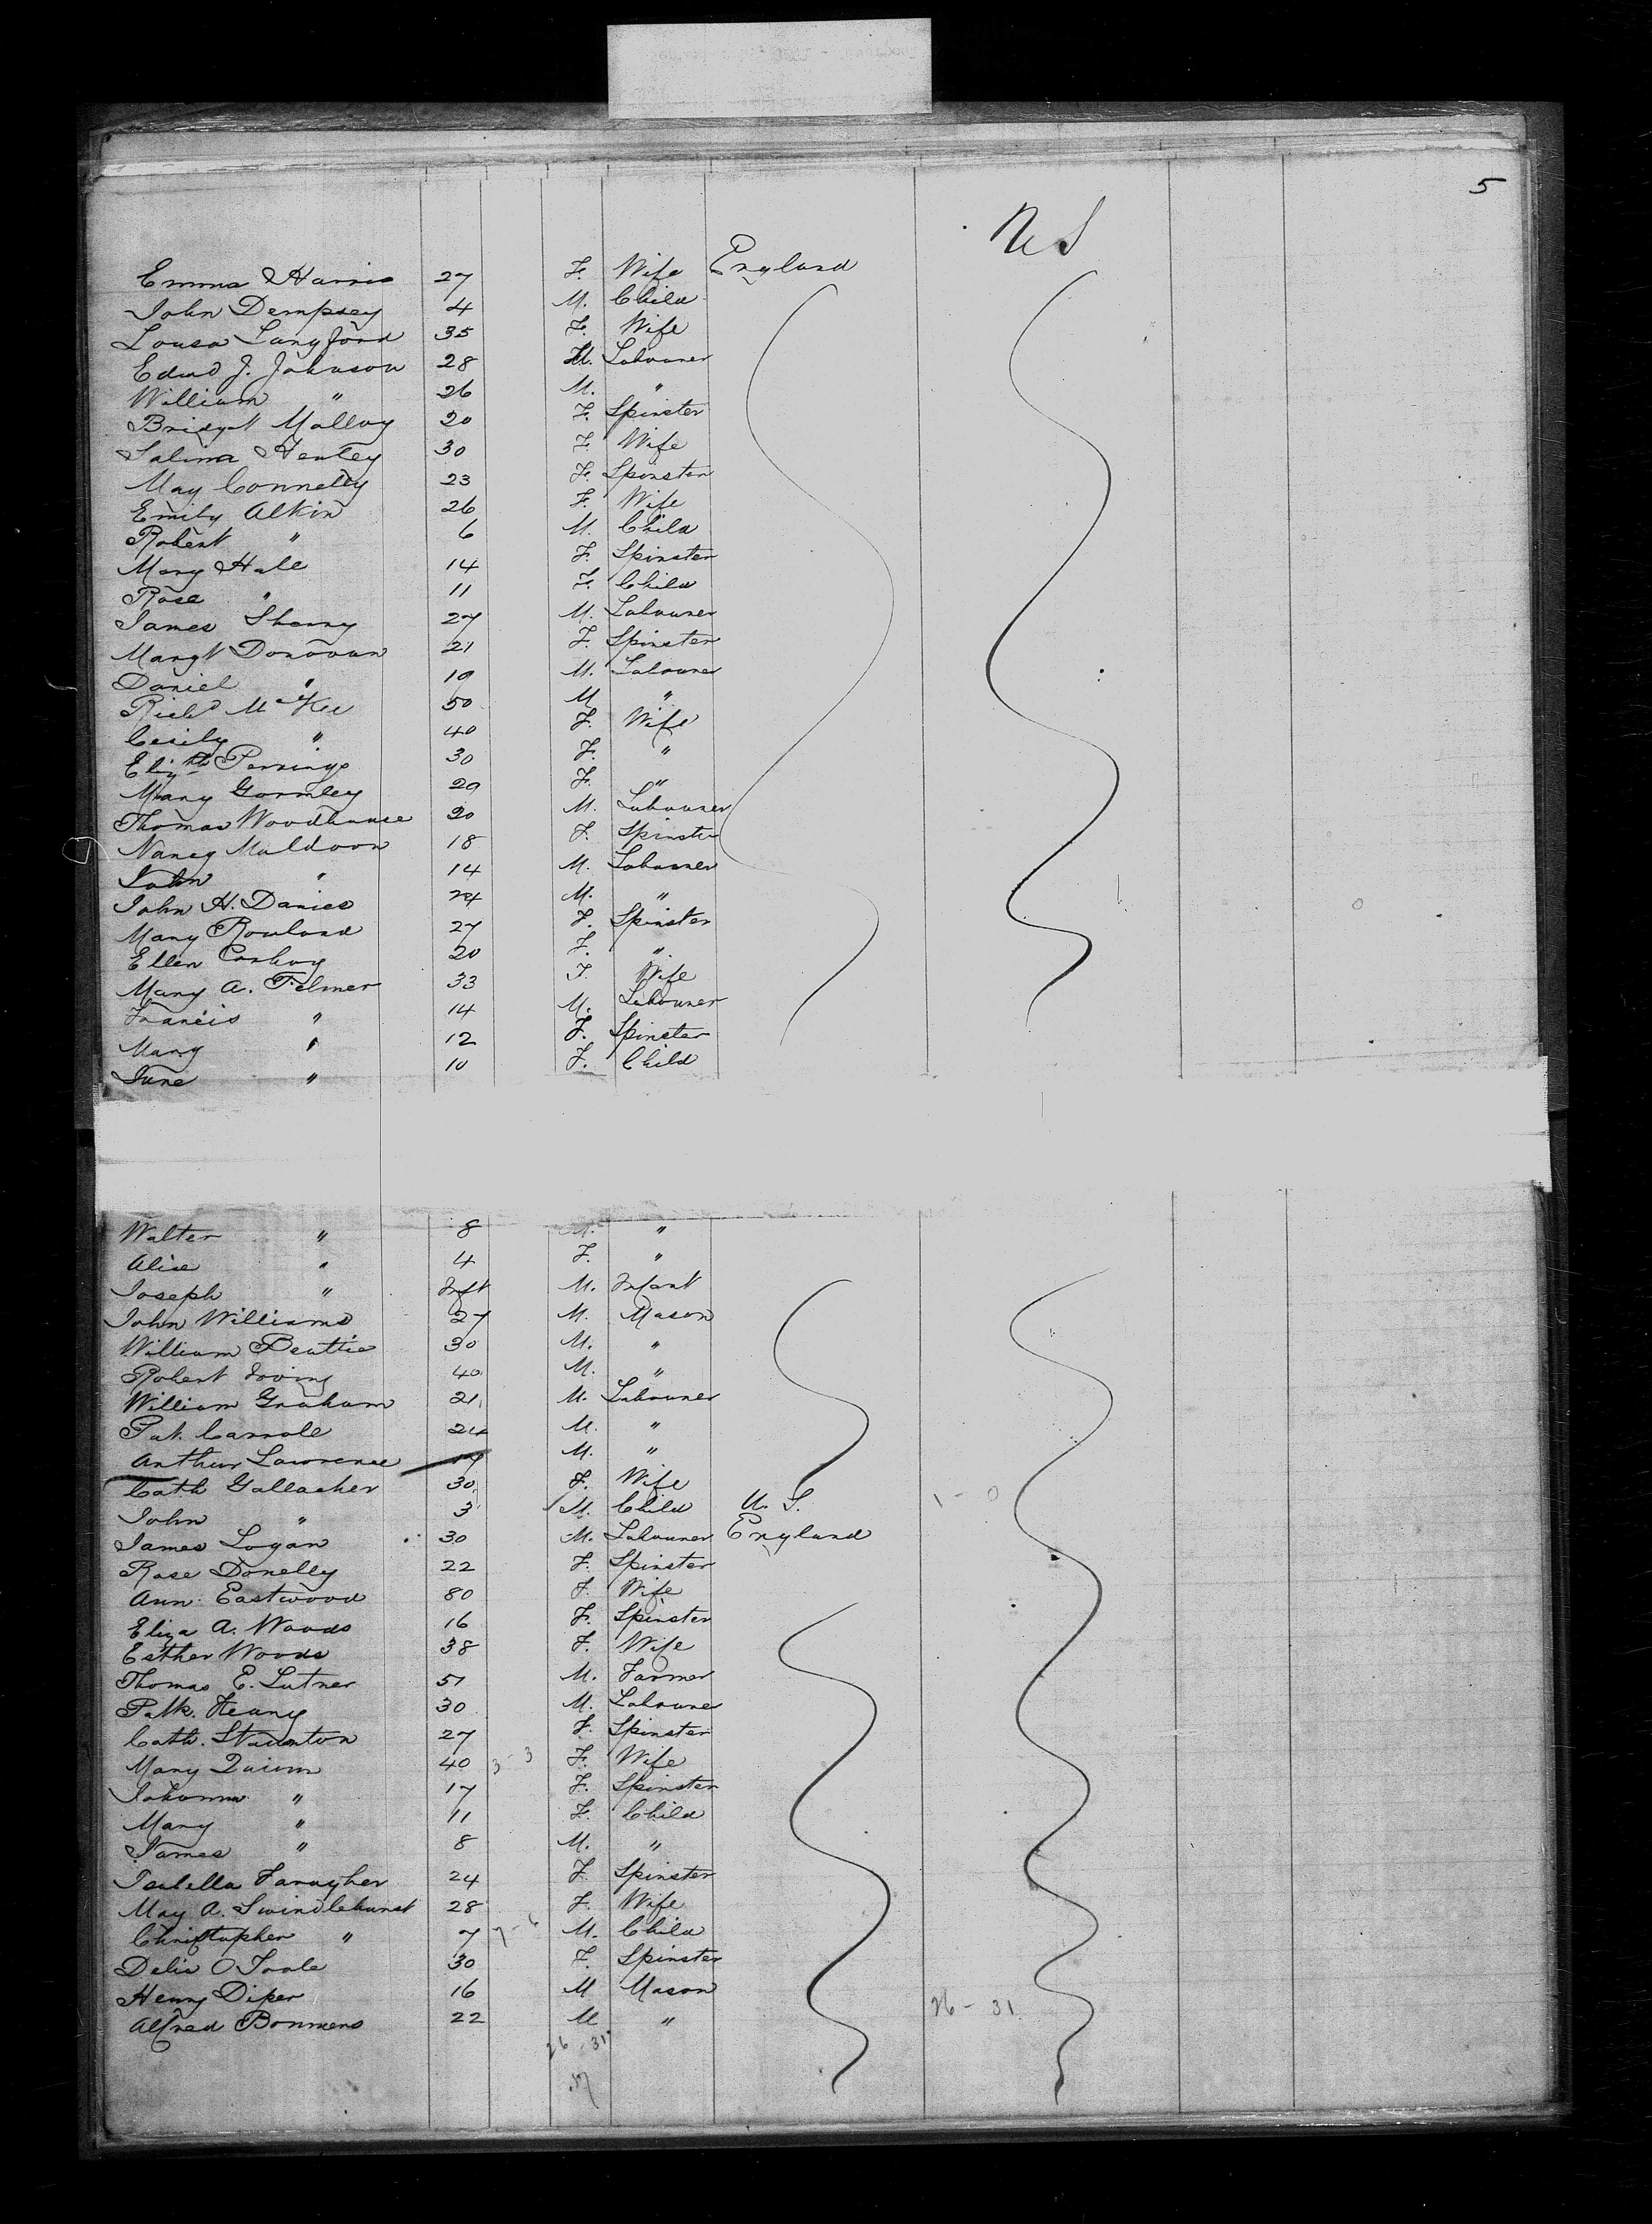 5
U S
Emma Harris 27 F. Wife England
John Dempsey 4 M. Child
Lousa Langford 35 F. Wife
Edwd J. Johnson 28 M. Labourer
William " 26 M. "
Bridgt Malloy 20 F. Spinster
Salina Henley 30 F. Wife
May Connelly 23 F. Spinster
Emily Atkin 26 F. Wife
Robert " 6 M. Child
Mary Hall 14 F. Spinster
Rose " 11 F. Child
James Sherry 27 M. Labourer
Margt Donovan 21 F. Spinster
Daniel " 19 M. Labourer
Richd McKee 50 M "
Cecily " 40 F. Wife
Elizth Perrings 30 F. "
Mary Gormley 29 F. "
Thomas Woodhouse 20 M. Labourer
Nancy Muldoon 18 F. Spinster
John " 14 M. Labourer
John H. Davies 24 M. "
Mary Rowland 27 F. Spinster
Ellen 20 F. "
Mary A. Felmer 33 F. Wife
Francis " 14 M. Labourer
Mary " 12 F. Spinster
Jane " 10 F. Child
Walter " 8 M. "
Alice " 4 F. "
Joseph " Inft M. Infant
John Williams 27 M. Mason
William Beattie 30 M. "
Robert Irving 40 M. "
William Graham 21 M. Labourer
Pat. Carroll 24 M. "
Arthur Lawrence M. "
Cath Gallagher 30 F. Wife
John " 3 M. Child U. S. 1 - 0
James Logan 30 M. Labourer England
Rose Donelly 22 F. Spinster
Ann Eastwood 80 F. Wife
Eliza A. Woods 16 F. Spinster
Esther Woods 38 F. Wife
Thomas E. Lutner 51 M. Farmer
Patk. Heany 30 M. Labourer
Cath. Staunton 27 F. Spinster
Mary Quinn 40 3 - 3 F. Wife
Johanna " 17 F. Spinster
Mary " 11 F. Child
James " 8 M. "
Isabella Faragher 24 F. Spinster
May A. Swindlehurst 28 F. Wife
Christopher " 7 M. Child
Delia O Toole 30 F. Spinster
Henry Diper 16 M Mason
Alfred Bonmens 22 M " 26 - 31
26 - 31